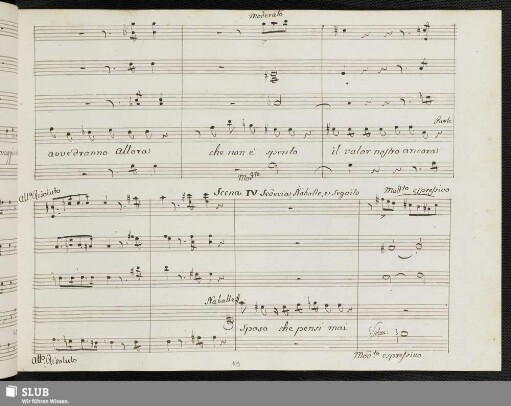 Moderato
Parte
avvedranno allora che non è spento il valor nostro ancora
Mod.to
Scena IV Sedecia, Naballe, e Seguito
All.o Risoluto
Mod.to espressivo
Naballe
Sposo che pensi mai
All.o Risoluto
Mod.to espressivo
SLUB
Wir führen Wissen.